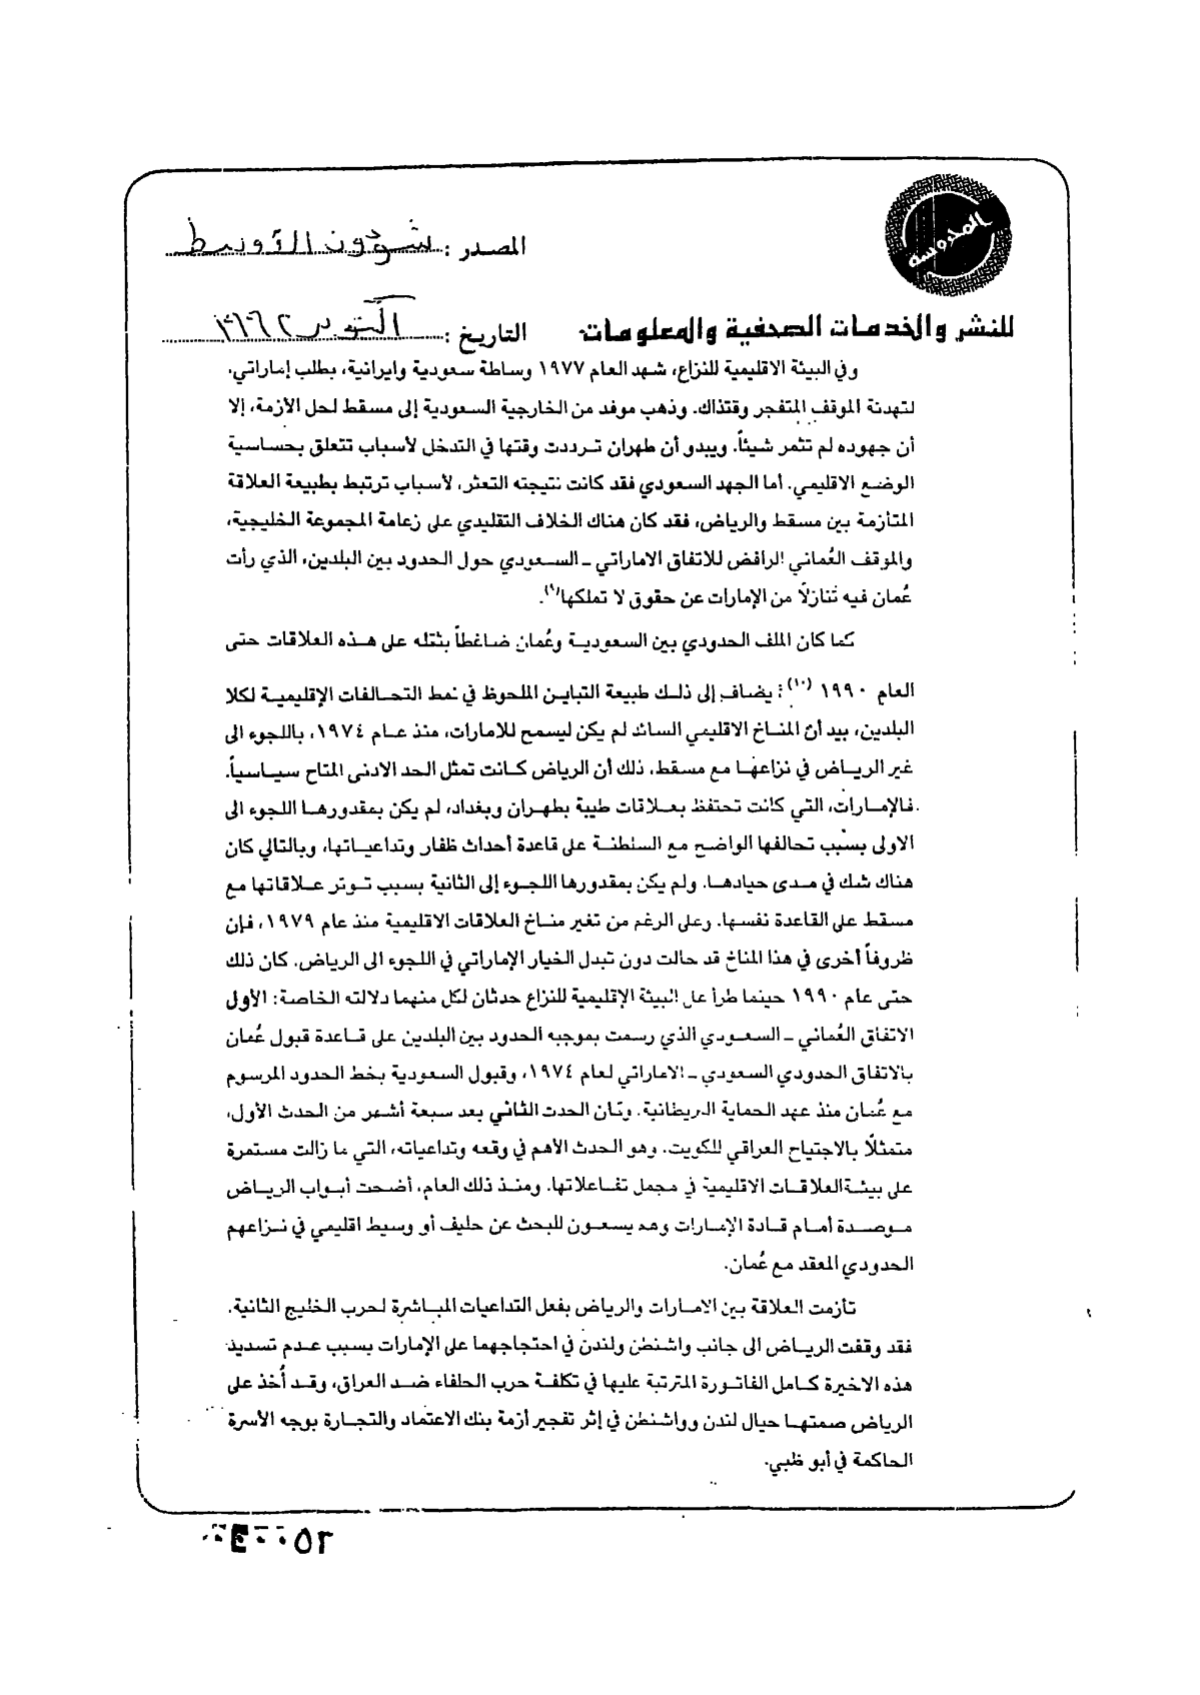 المحروسة
المصدر : شؤون الأوسط
للنشر والخدمات الصحفية والمعلومات
التاريخ : أكتوبر
وفي البيئة الاقليمية للنزاع، شهد العام ١٩٧٧ وساطة سعودية وايرانية، بطلب إماراتي.
لتهدئة الموقف المتفجر وقتذاك. وذهب موفد من الخارجية السعودية إلى مسقط لحل الأزمة، إلا
أن جهوده لم تثمر شيئاً. ويبدو أن طهران ترددت وقتها في التدخل لأسباب تتعلق بحساسية
الوضع الاقليمي. أما الجهد السعودي فقد كانت نتيجته التعثر، لأسباب ترتبط بطبيعة العلاقة
المتأزمة بين مسقط والرياض، فقد كان هناك الخلاف التقليدي على زعامة المجموعة الخليجية،
والموقف العُماني الرافض للاتفاق الاماراتي ـ السعودي حول الحدود بين البلدين، الذي رأت
عُمان فيه تنازلاً من الإمارات عن حقوق لا تملكها(٩).
كما كان الملف الحدودي بين السعودية وعُمان ضاغطاً بثقله على هذه العلاقات حتى
العام ١٩٩٠ (١٠): يضاف إلى ذلك طبيعة التباين الملحوظ في نمط التحالفات الإقليمية لكلا
البلدين، بيد أن المناخ الاقليمي السائد لم يكن ليسمح للامارات، منذ عام ١٩٧٤، باللجوء الى
غير الرياض في نزاعها مع مسقط، ذلك أن الرياض كانت تمثل الحد الادنى المتاح سياسياً.
فالإمارات، التي كانت تحتفظ بعلاقات طيبة بطهران وبغداد، لم يكن بمقدورها اللجوء الى
الاولى بسبب تحالفها الواضح مع السلطنة على قاعدة أحداث ظفار وتداعياتها، وبالتالي كان
هناك شك في مدى حيادها. ولم يكن بمقدورها اللجوء إلى الثانية بسبب توتر علاقاتها مع
مسقط على القاعدة نفسها. وعلى الرغم من تغير مناخ العلاقات الاقليمية منذ عام ١٩٧٩، فإن
ظروفاً أخرى في هذا المناخ قد حالت دون تبدل الخيار الإماراتي في اللجوء الى الرياض. كان ذلك
حتى عام ١٩٩٠ حينما طرأ على البيئة الإقليمية للنزاع حدثان لكل منهما دلالته الخاصة: الأول
الاتفاق العُماني ـ السعودي الذي رسمت بموجبه الحدود بين البلدين على قاعدة قبول عُمان
بالاتفاق الحدودي السعودي ـ الاماراتي لعام ١٩٧٤، وقبول السعودية بخط الحدود المرسوم
مع عُمان منذ عهد الحماية البريطانية. وكان الحدث الثاني بعد سبعة أشهر من الحدث الأول،
متمثلاً بالاجتياح العراقي للكويت. وهو الحدث الأهم في وقعه وتداعياته، التي ما زالت مستمرة
على بيئة العلاقات الاقليمية في مجمل تفاعلاتها. ومنذ ذلك العام، أضحت أبواب الرياض
موصدة أمام قادة الإمارات وهم يسعون للبحث عن حليف أو وسيط اقليمي في نزاعهم
الحدودي المعقد مع عُمان.
تأزمت العلاقة بين الامارات والرياض بفعل التداعيات المباشرة لحرب الخليج الثانية.
فقد وقفت الرياض الى جانب واشنطن ولندن في احتجاجهما على الإمارات بسبب عدم تسديد
هذه الاخيرة كامل الفاتورة المترتبة عليها في تكلفة حرب الحلفاء ضد العراق، وقد أُخذ على
الرياض صمتها حيال لندن وواشنطن في إثر تفجير أزمة بنك الاعتماد والتجارة بوجه الأسرة
الحاكمة في أبو ظبي.